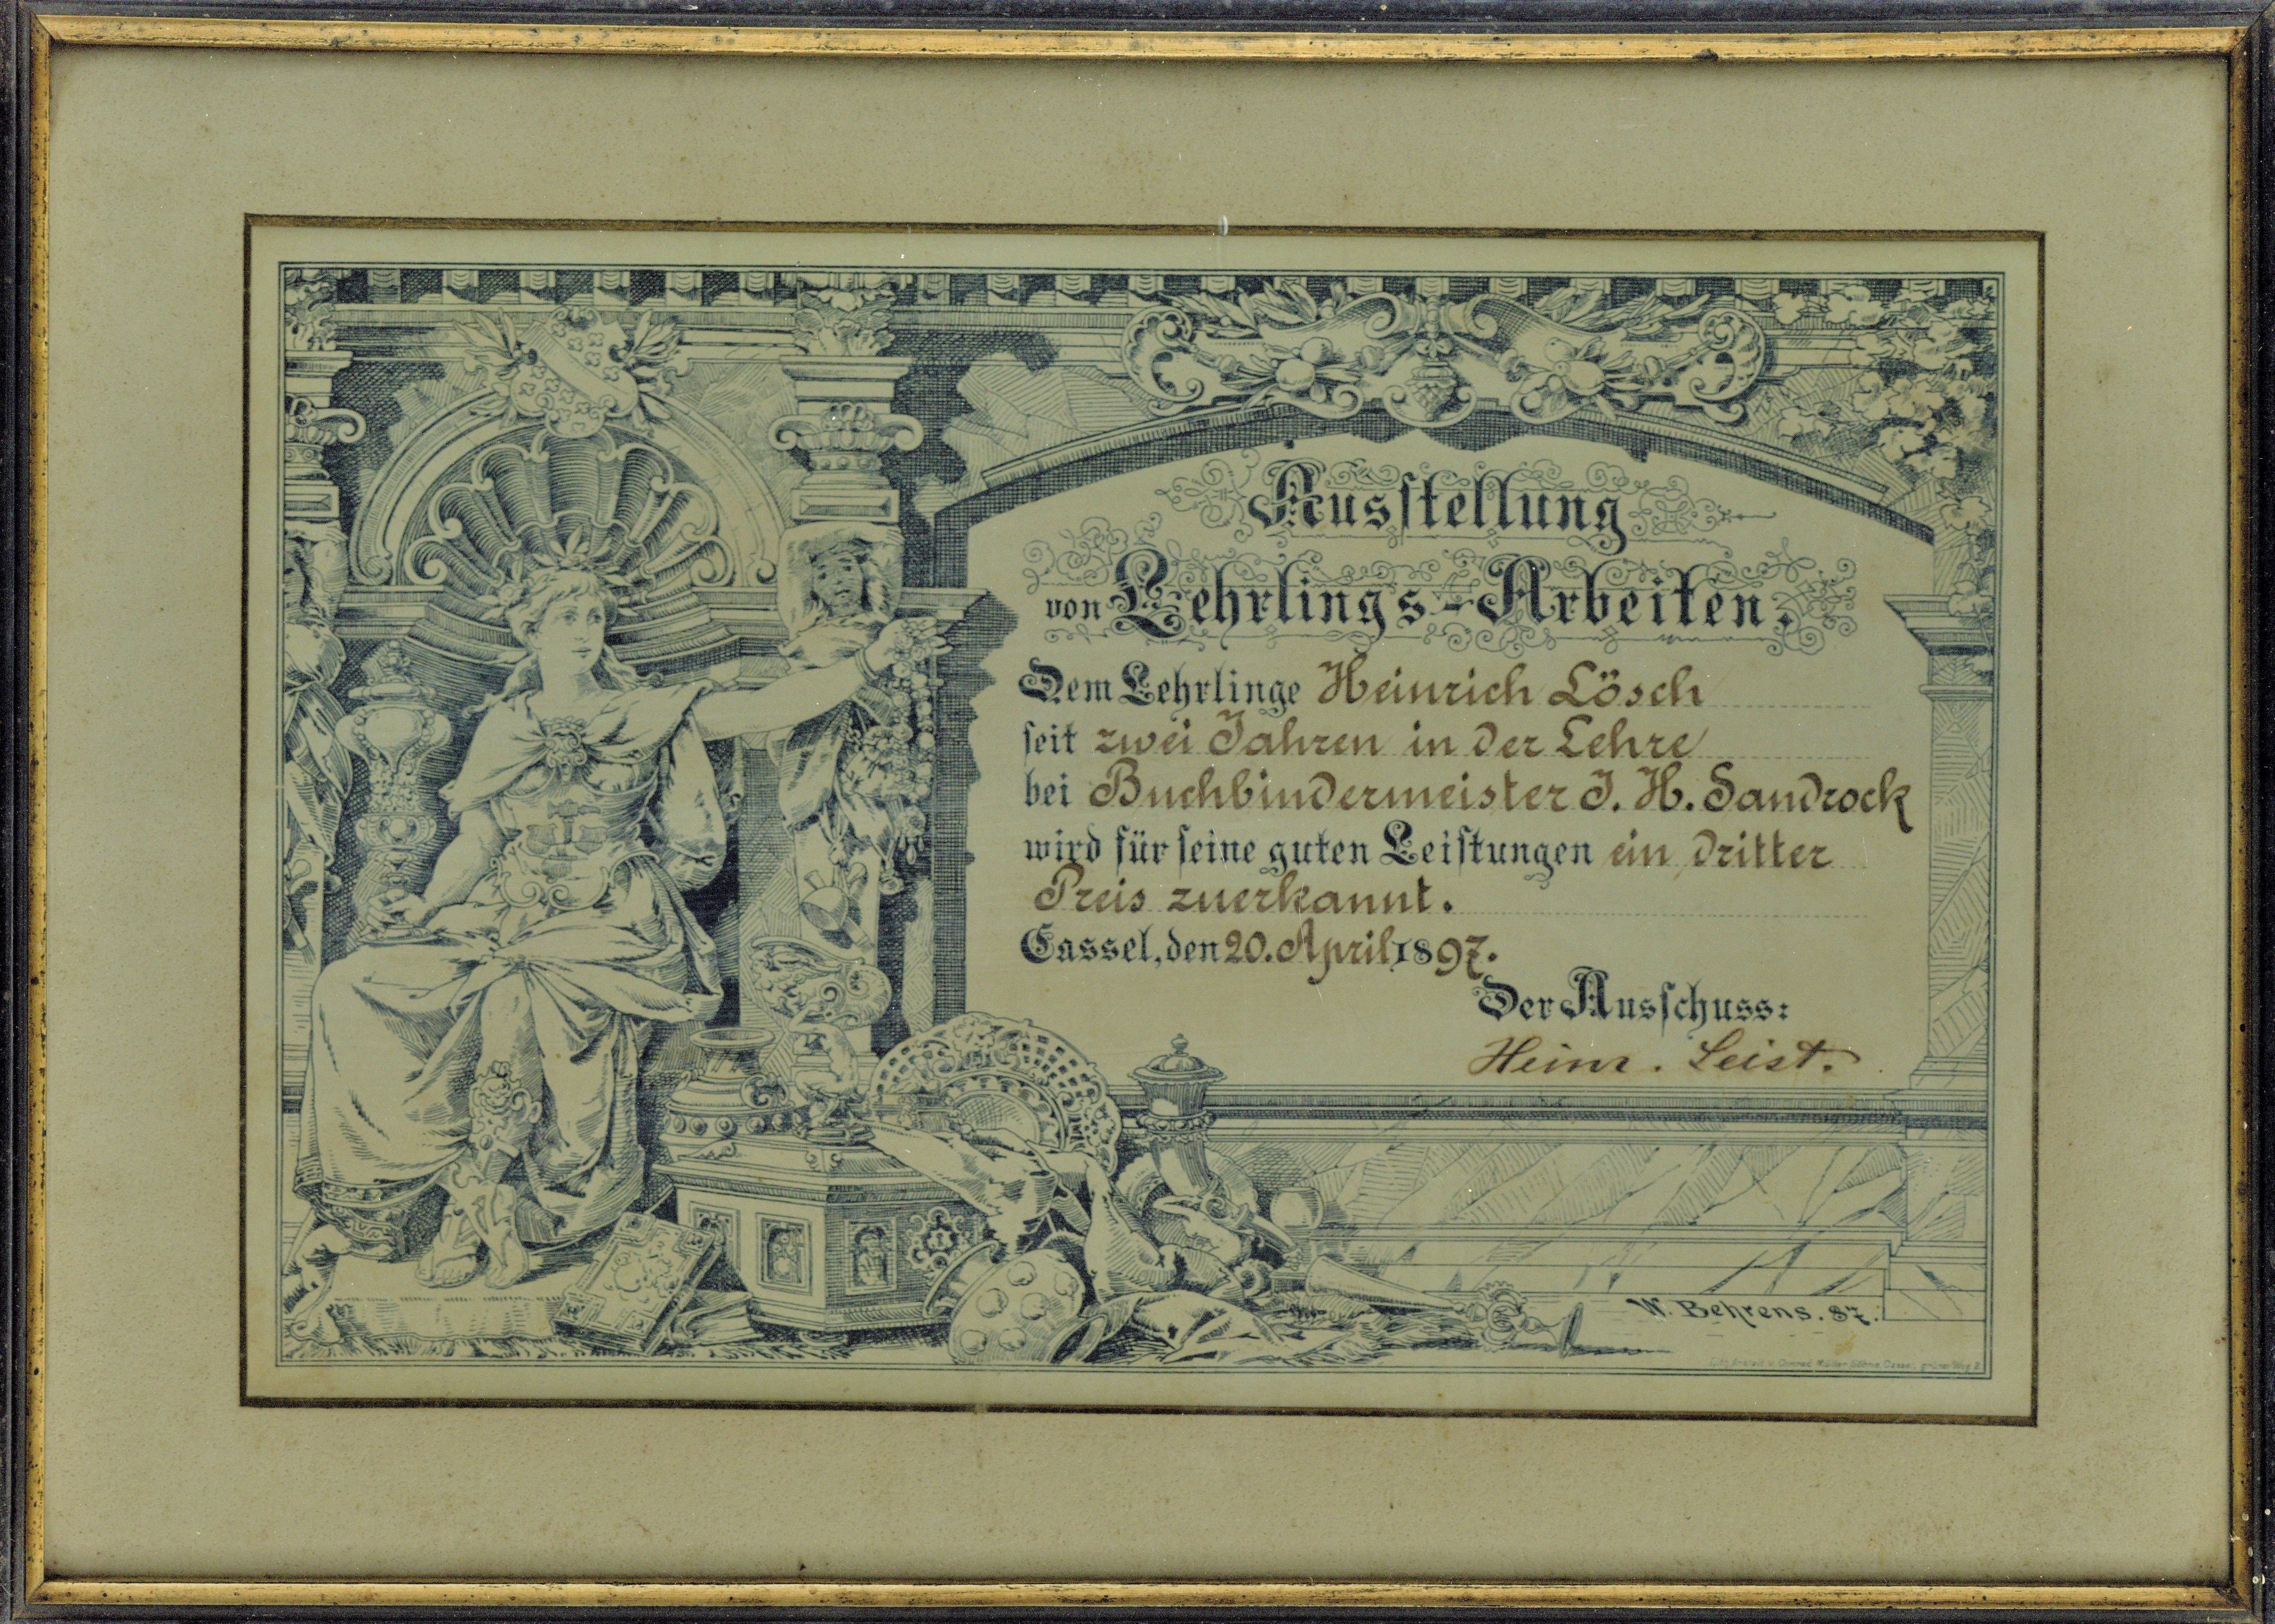 Ausstellung
von Lehrlings-Arbeiten.
Dem Lehrlinge Heinrich Lösch
seit zwei Jahren in der Lehre
bei Buchbindermeister J. H. Sandrock
wird für seine guten Leistungen ein dritter
Preis zuerkannt.
Cassel, den 20. April 1897.
Der Ausschuss:
Heinr. Leist.
W. Behrens. 87.